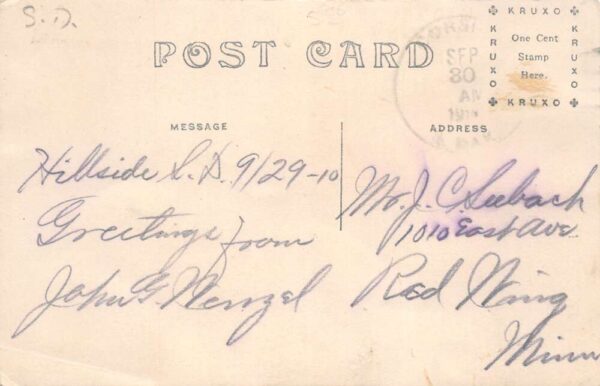 S.D.
POST CARD
KRUXO
KRUXO
KRUXO
One Cent
Stamp
Here.
KRUXO
SEP
30
AM
MESSAGE
ADDRESS
Hillside S.D. 9/29-10
Greetings from
John G. Wenzel
Mr. J. C. Seebach
1010 East Ave
Red Wing
Minn